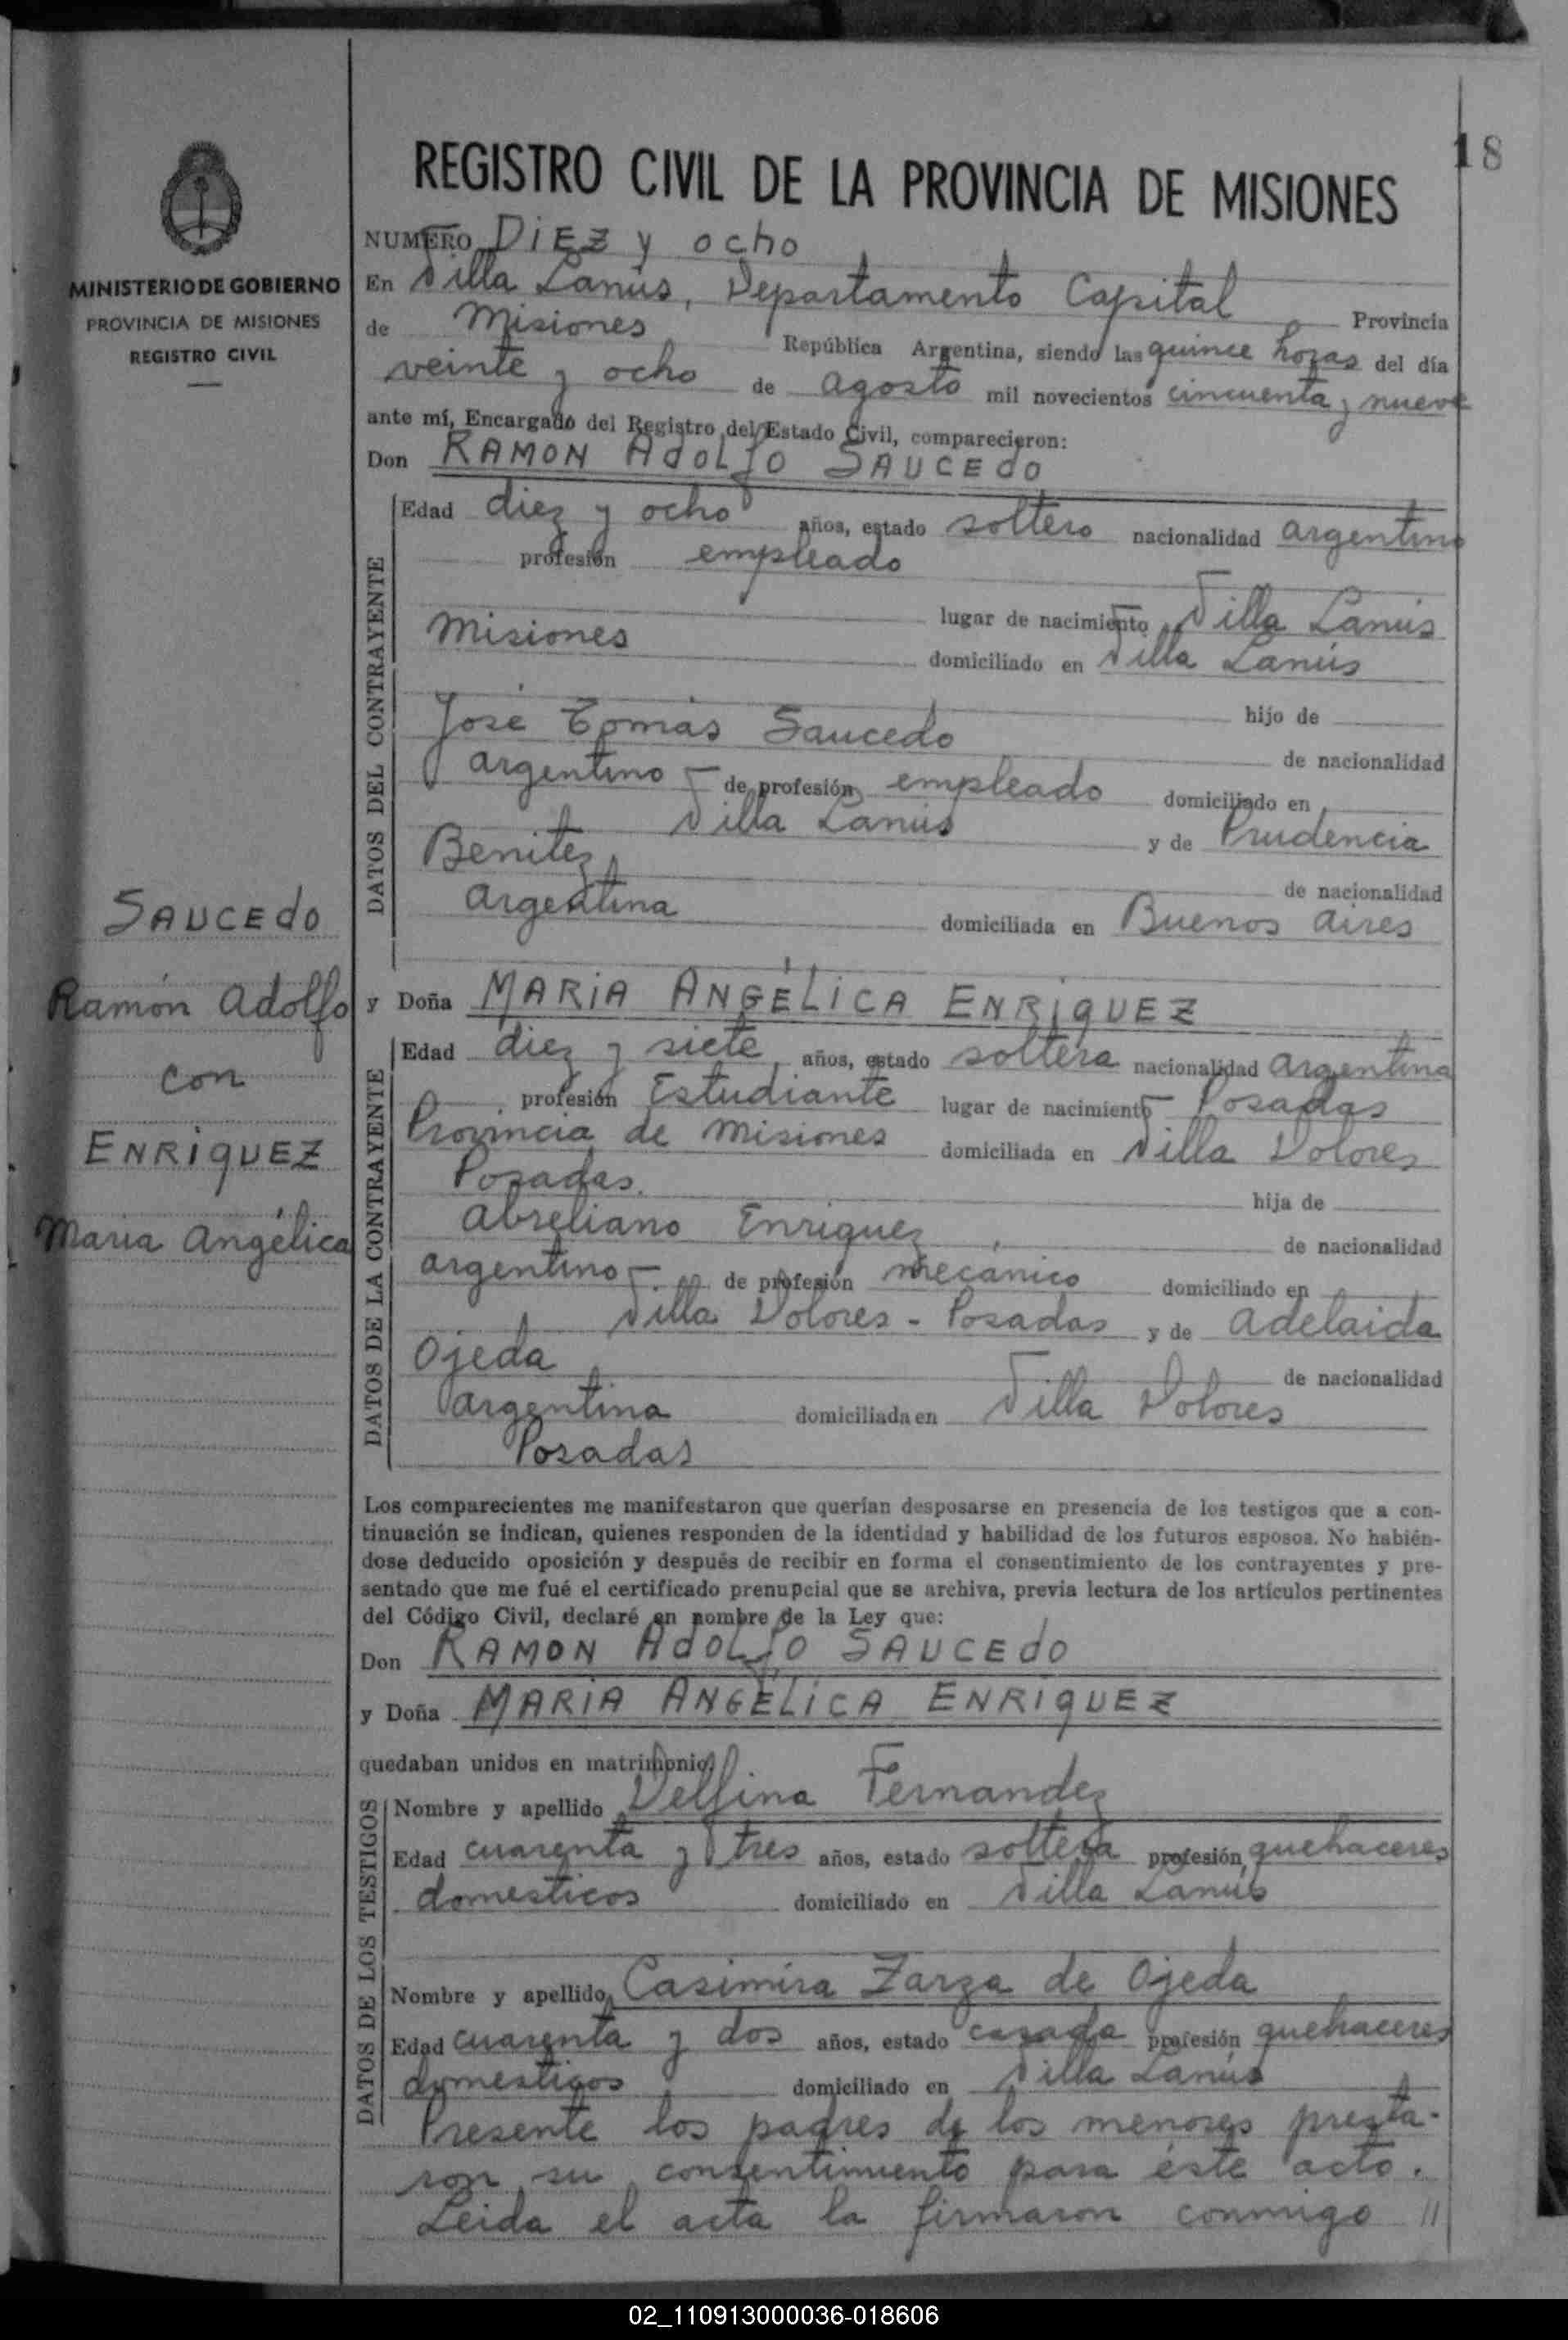 18
REGISTRO CIVIL DE LA PROVINCIA DE MISIONES
MINISTERIO DE GOBIERNO
PROVINCIA DE MISIONES
REGISTRO CIVIL
NUMERO DiEZ y ocho
En Villa Lanús, Departamento Capital
de Misiones Provincia
República Argentina, siendo las quince horas del día
veinte y ocho de agosto mil novecientos cincuenta y nueve
ante mí, Encargado del Registro del Estado Civil, comparecieron:
Don RAMON AdOLfO SAUCEdO
DATOS DEL CONTRAYENTE
Edad diez y ocho años, estado soltero nacionalidad argentino
profesión empleado
lugar de nacimiento Villa Lanús
Misiones domiciliado en Villa Lanús
hijo de
José Tomás Saucedo de nacionalidad
argentino de profesión empleado domiciliado en
Villa Lanús y de Prudencia
Benitez de nacionalidad
argentina domiciliada en Buenos Aires
SAUCEdO
Ramón Adolfo
con
ENRiqUEZ
Maria Angélica
y Doña MARiA ANGÉLiCA ENRiqUEZ
DATOS DE LA CONTRAYENTE
Edad diez y siete años, estado soltera nacionalidad argentina
profesión Estudiante lugar de nacimiento Posadas
Provincia de Misiones domiciliada en Villa Dolores
Posadas. hija de
Abreliano Enriquez, de nacionalidad
argentino de profesión mecánico domiciliado en
Villa Dolores - Posadas y de Adelaida
Ojeda de nacionalidad
argentina domiciliada en Villa Dolores
Posadas
Los comparecientes me manifestaron que querían desposarse en presencia de los testigos que a con-
tinuación se indican, quienes responden de la identidad y habilidad de los futuros esposos. No habién-
dose deducido oposición y después de recibir en forma el consentimiento de los contrayentes y pre-
sentado que me fué el certificado prenupcial que se archiva, previa lectura de los artículos pertinentes
del Código Civil, declaré en nombre de la Ley que:
Don RAMON AdOLfO SAUCEdO
y Doña MARiA ANGÉLiCA ENRiqUEZ
quedaban unidos en matrimonio.
DATOS DE LOS TESTIGOS
Nombre y apellido Delfina Fernandez
Edad cuarenta y tres años, estado soltera profesión quehaceres
domesticos domiciliado en Villa Lanús
Nombre y apellido Casimira Zarza de Ojeda
Edad cuarenta y dos años, estado casada profesión quehaceres
domesticos domiciliado en Villa Lanús
Presente los padres de los menores presta-
ron su consentimiento para éste acto.
Leida el acta la firmaron conmigo //
02_110913000036-018606